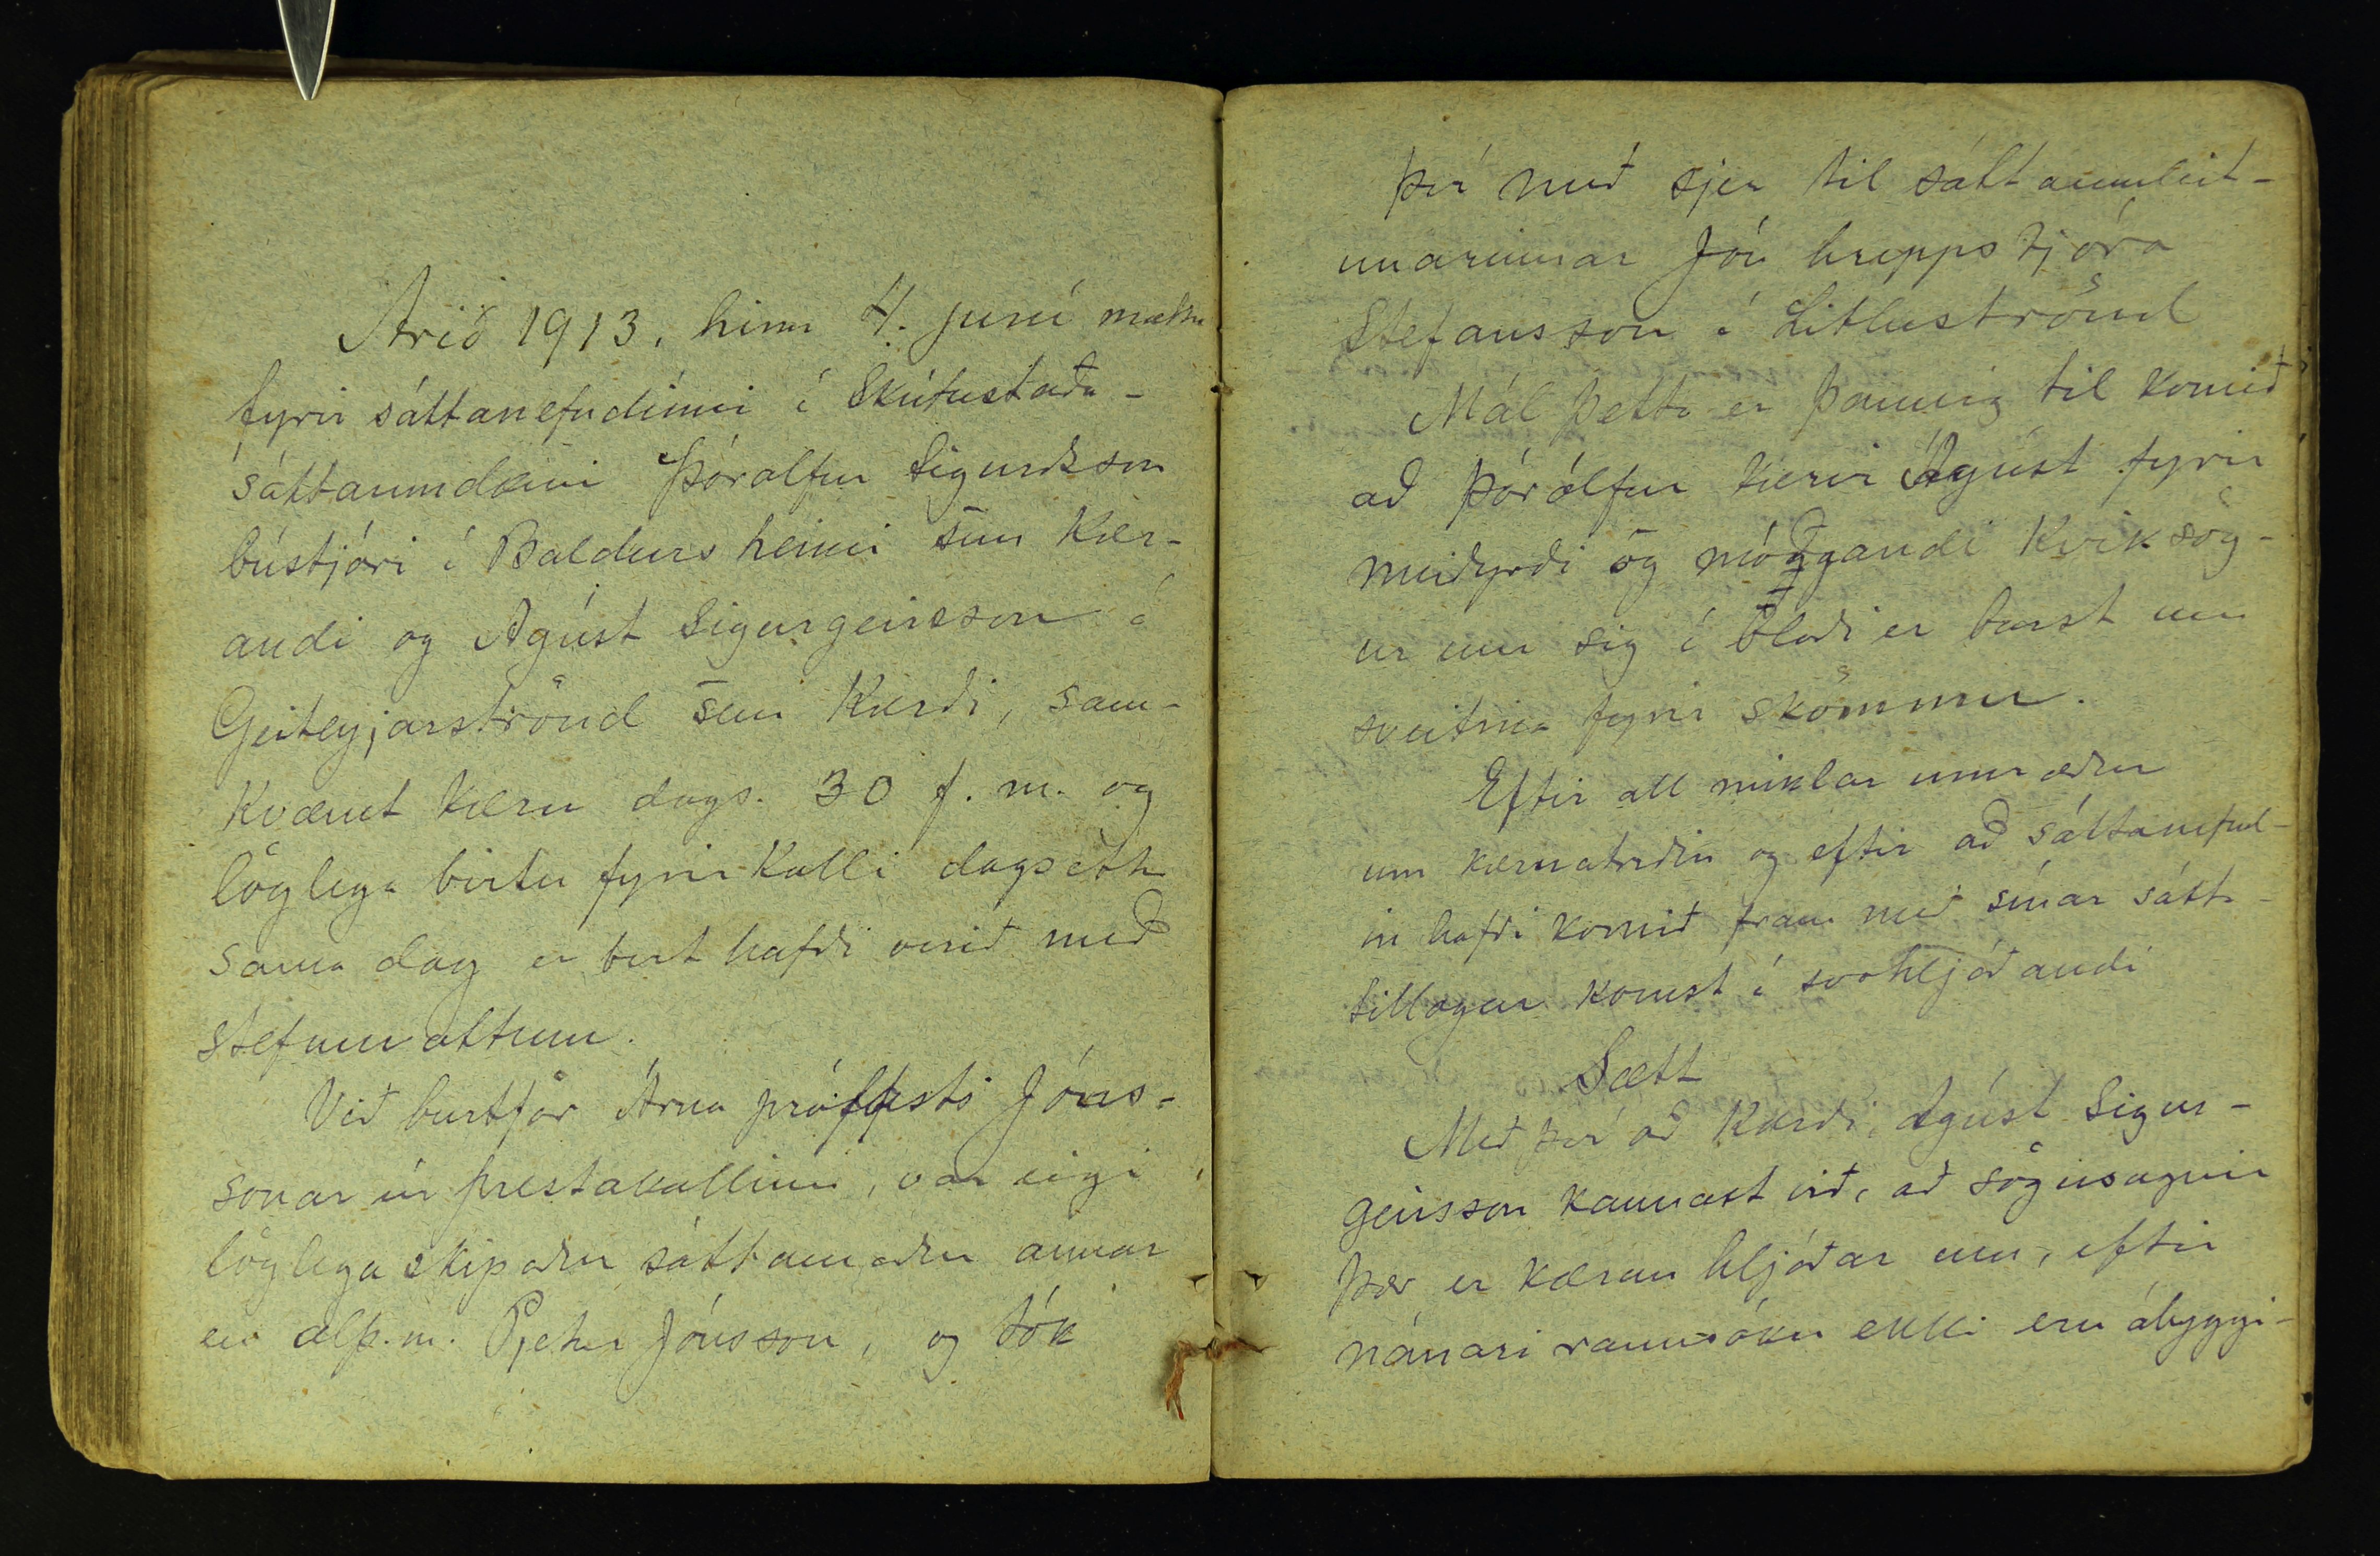 Árið 1913, hinn 4. júní mættu
fyrir sáttanefndinni í Skútustaða-
sáttaumdæmi Þórólfur Sigurðsson
bústjóri í Baldursheimi sem kær-
andi og Ágúst Sigurgeirsson á
Geiteyjarströnd sem kærði, sam-
kvæmt kæru dags. 30 f. m. og
löglega birtu fyrirkalli dagsettu
sama dag er birt hafði verið með
stefnuvottum.
Við burtför Árna prófasts Jóns-
sonar úr prestakallinu, var eigi
löglega skipaður sáttamaður annar
en alþ.m. Pjetur Jónsson, og tók
því með sjer til sáttaumleit-
unarinnar Jón hreppstjóra
Stefansson á Litluströnd
Mál þetta er þannig til komið
að Þórólfur kærir Ágúst fyrir
meiðyrði og móðgandi kviksög-
ur um sig í blaði er barst um
sveitina fyrir skömmu.
Eftir all miklar umræður
um kæruatriðin og eftir að sáttanefnd-
in hafði komið fram með sínar sátta-
tillögur komst á svohljóðandi
Sætt
Með því að kærði, Ágúst Sigur-
geirsson kannast við, að sögusagnir
þær er kæran hljóðar um, eftir
nánari rannsókn ekki eru ábyggi-